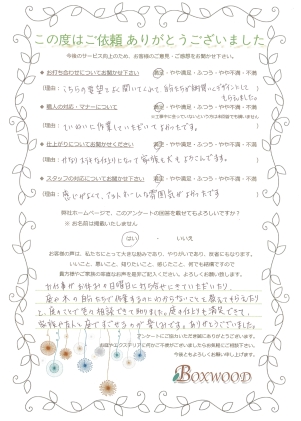 この度はご依頼 ありがとうございました
今後のサービス向上のため、お客様のご意見・ご感想をお聞かせ下さい。
◆ お打ち合わせについてお聞かせ下さい 満足・やや満足・ふつう・やや不満・不満
(理由: こちらの要望をよく聞いてくれて、自分たちが納得いくデザインにして
もらえました。 )
◆ 職人の対応・マナーについて 満足・やや満足・ふつう・やや不満・不満
(理由: ていねいに作業していただいてよかったです。 )
◆ 仕上がりについてお聞かせください 満足・やや満足・ふつう・やや不満・不満
(理由: かなりすてきな仕上りになって家族も大よろこびです。 )
◆ スタッフの対応についてお聞かせ下さい 満足・やや満足・ふつう・やや不満・不満
(理由: 感じがよくて、アットホームな雰囲気がよかったです )
弊社ホームページで、このアンケートの回答を載せてもよろしいですか?
※ お名前は掲載いたしません
はい いいえ
お客様の声は、私たちにとって大きな励みであり、やりがいであり、反省にもなります。
いいこと、悪いこと、知りたいこと、感じたこと、何でも結構ですので
貴方様やご家族の率直なお声を是非ご記入ください。よろしくお願い致します。
ありがとうございました。
アンケートにご協力いただき誠にありがとうございます。
お庭やエクステリアに何かご不便がございましたらお気軽にご相談下さい。
今後ともよろしくお願い申し上げます。
BOXWOOD